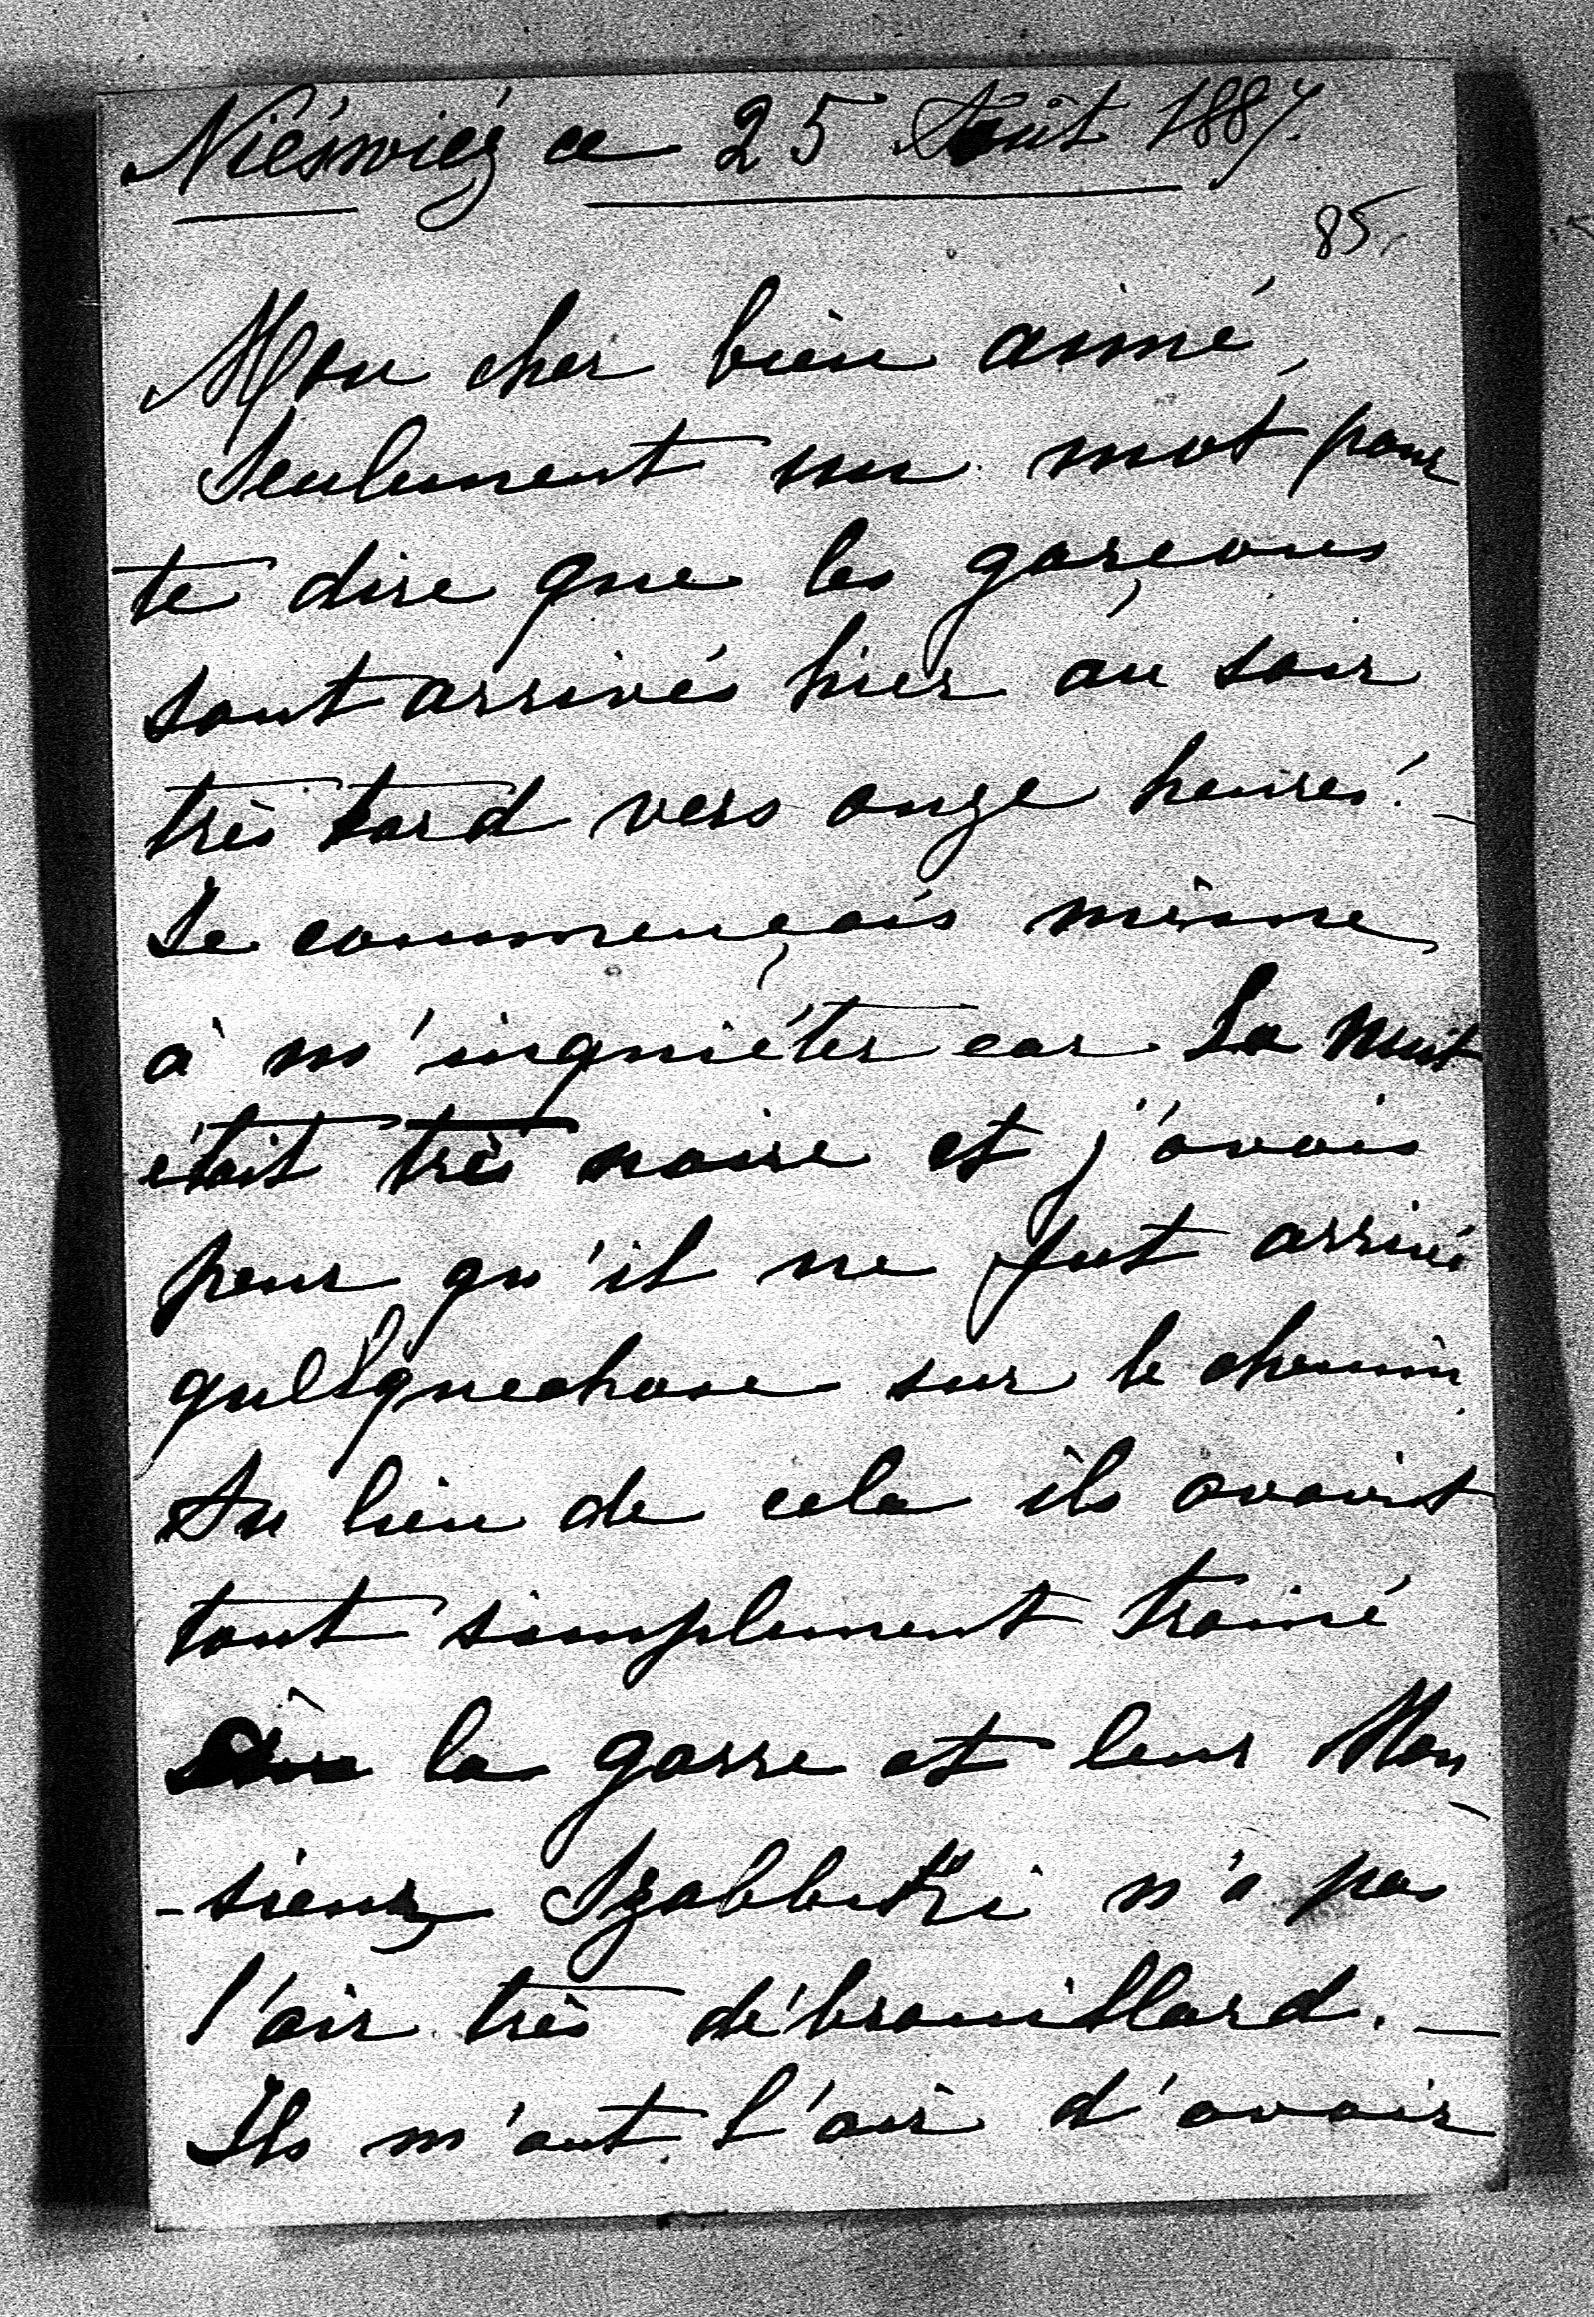 Nieświeź ce 25 Août 1887.
85.
Mon cher bien aimé,
Seulement un mot pour
te dire que les garçons
sont arrivés hier au soir
très tard vers onze heures! —
Je commençais même
à m'inquiéter car la nuit
était très noire et j'avais
peur qu'il ne fut arrivé
quelquechose sur le chemin.
Au lieu de cela ils avaient
tout simplement trainé
à la garre et leur Mon
-sieur n'a pas
l'air très débrouillard. —
Ils m'ont l'air d'avoir